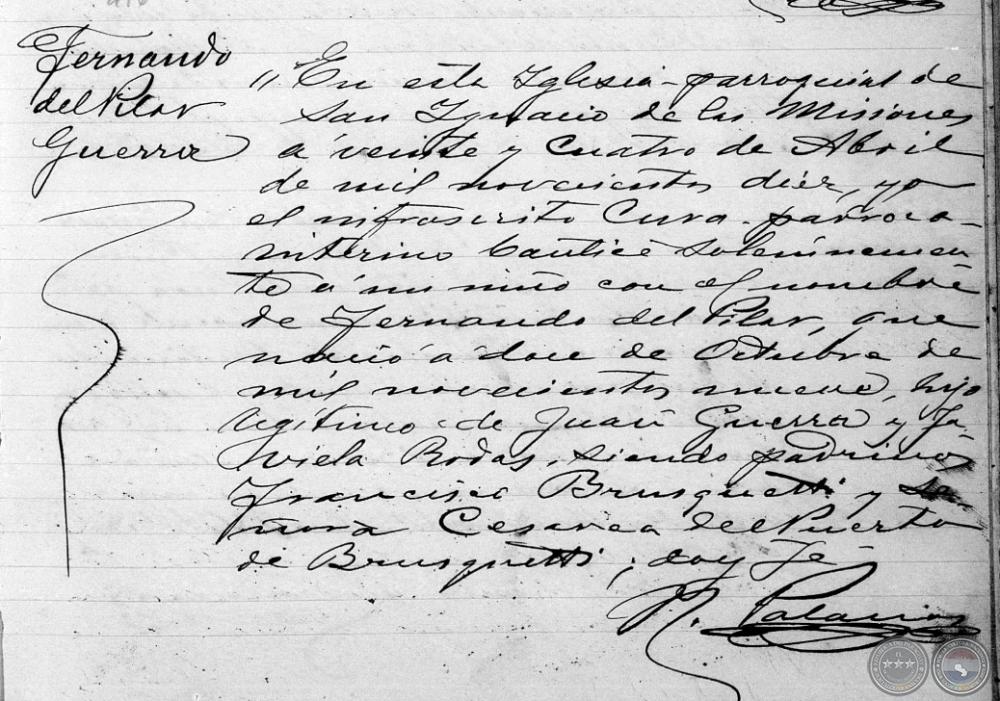 Fernando
del Pilar
Guerra
" En esta Iglesia parroquial de
San Ygnacio de las Misiones
á veinte y cuatro de Abril
de mil novecientos diez, yo
el infrascrito Cura parroco
interino bauticé solemnemen
te á un niño con el nombre
de Fernando del Pilar, que
nació á doce de Octubre de
mil novecientos nueve, hijo
legítimo de Juan Guerra y Ja-
viela Rodas, siendo padrinos
Francisco Brusquetti y se-
ñora Cesarea del Puerto
de Brusquetti; doy fé
N. Palacios